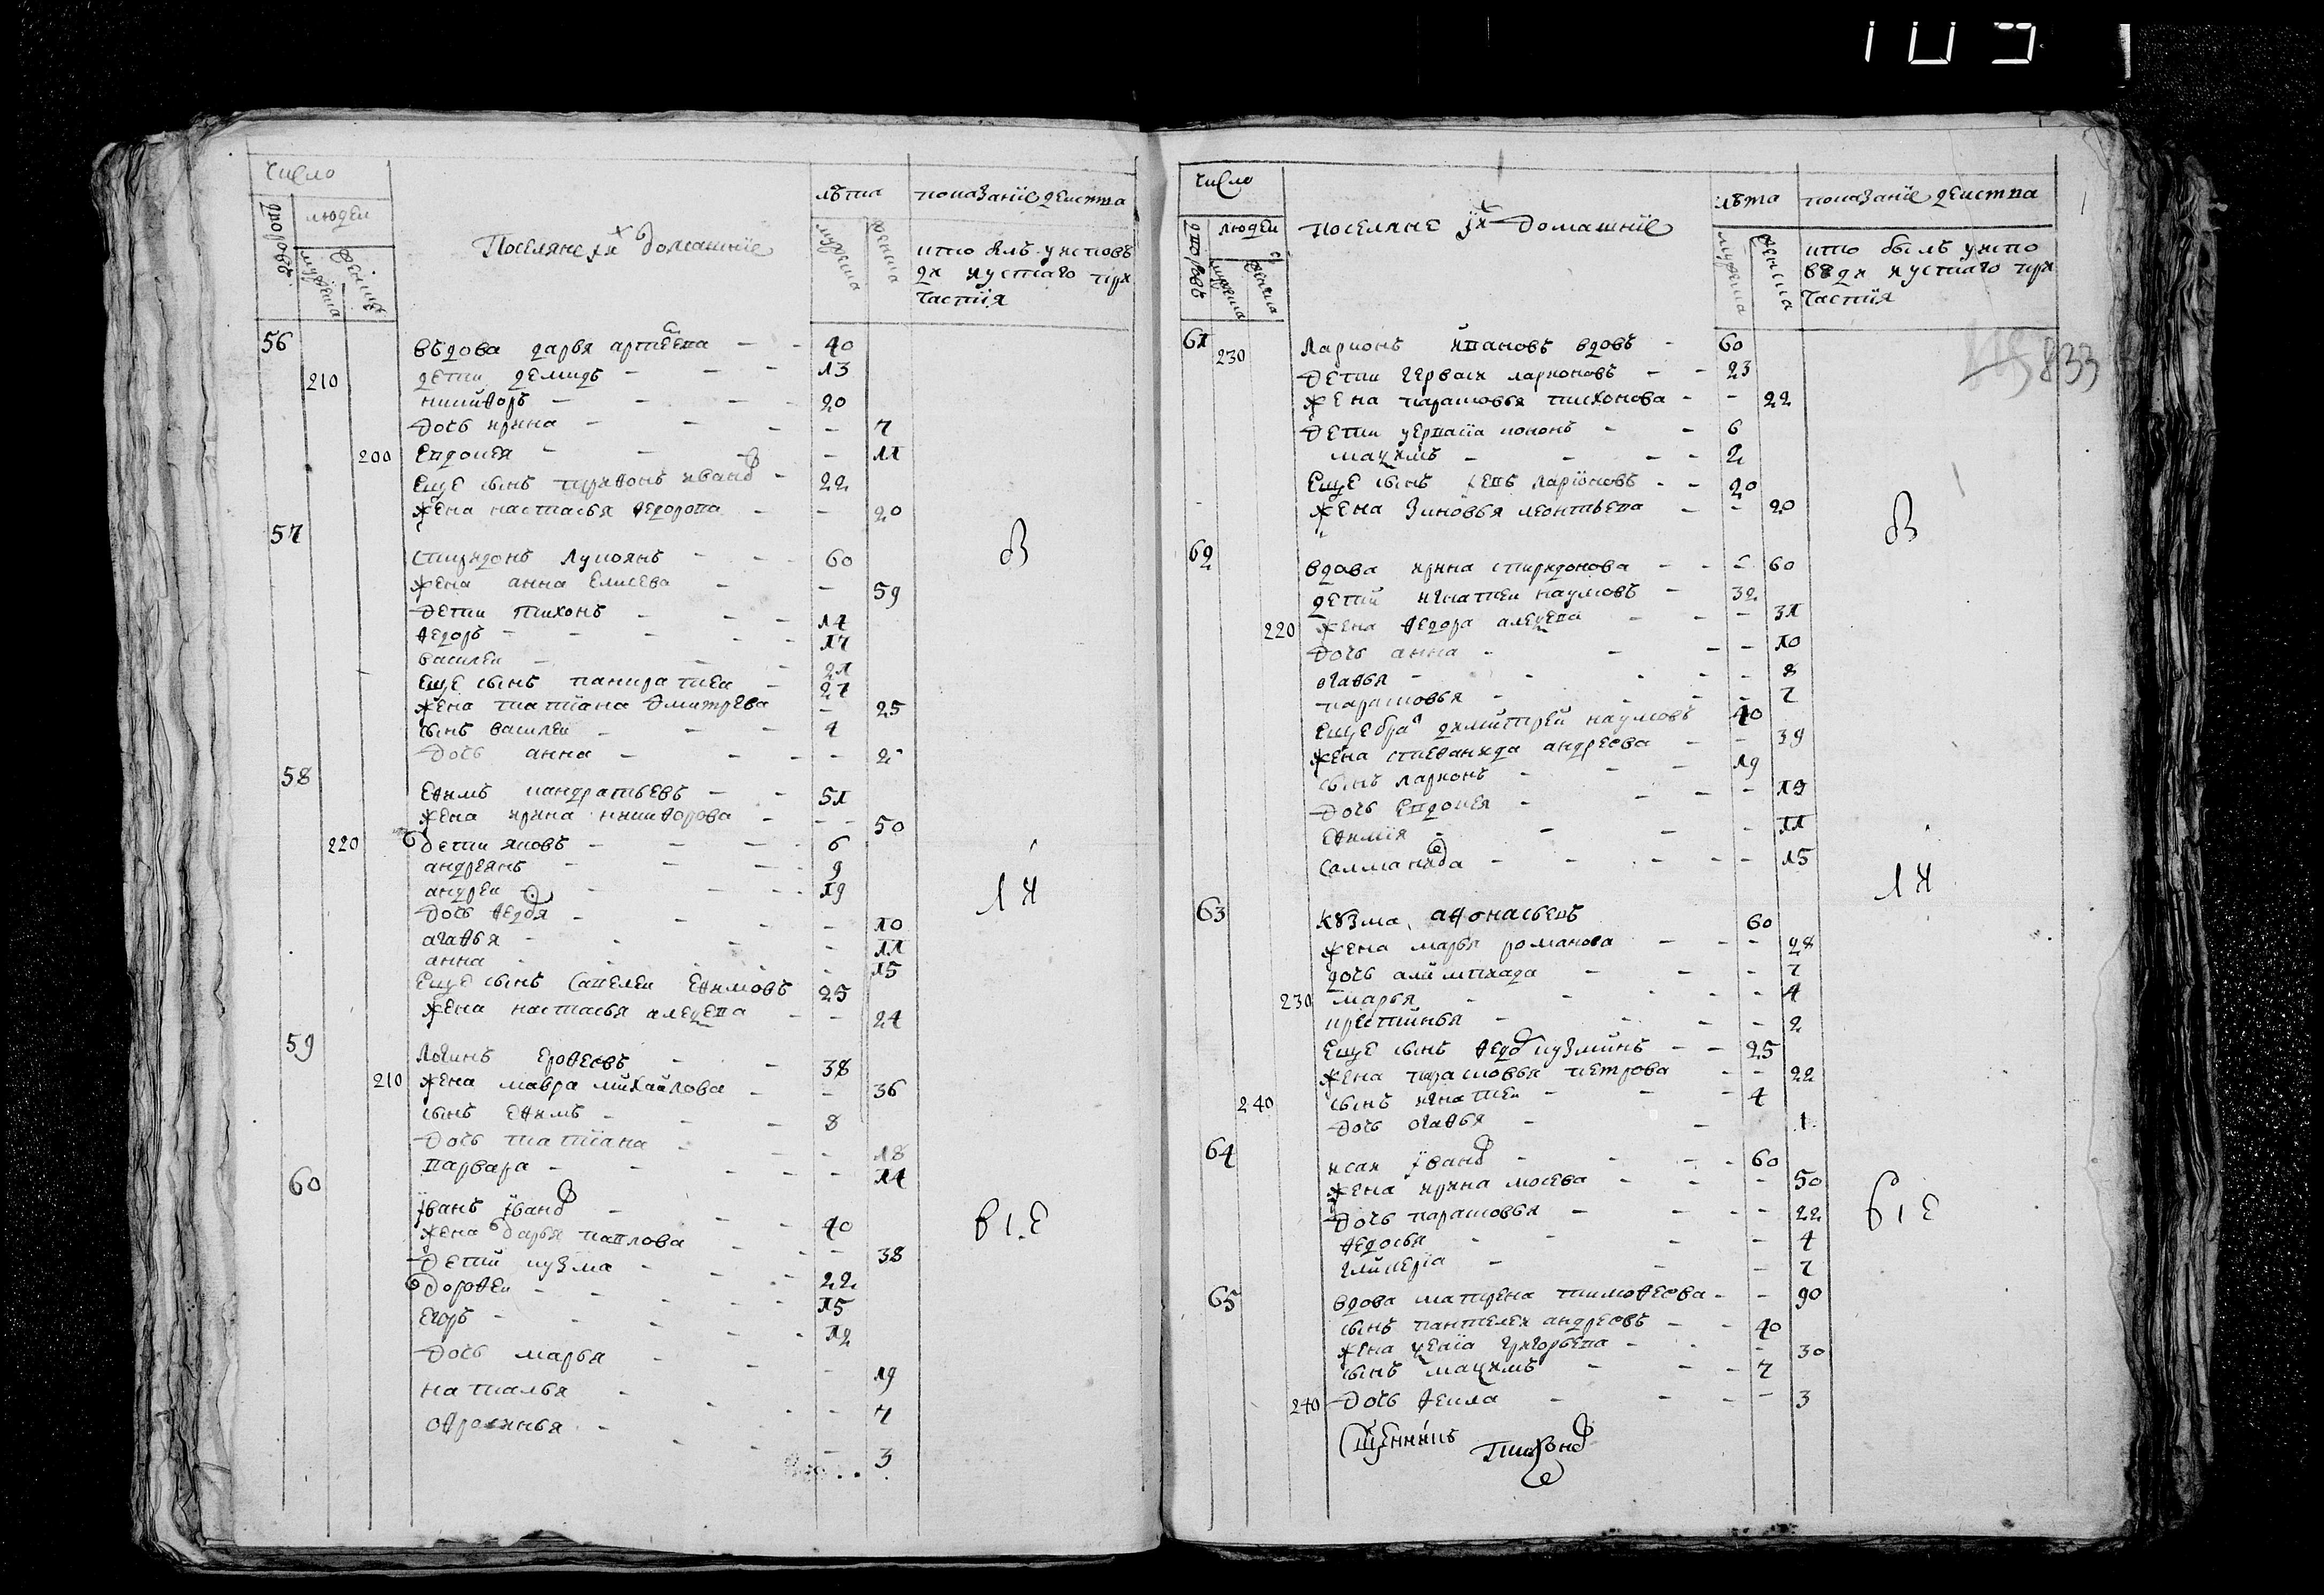 109
число
дворовъ
людеи
мужеска
женска
Поселяне їх домашние
лѣта
мужеска
женска
показание деиства
кто былъ у исповѣ
ди и у стаго при
частия
56 вѣдова дарья артеева - - 40
210 дети демидъ - - - 13
никифоръ - - - 20
дочь ирина - - - - 7
200 Евдокея - - - 11
Еще сынъ трифонъ иванов - 22
жена настасья федорова - - 20
57
спиридонъ лукоянъ - - 60
жена анна Елисева - - 59
дети тихонъ - - - 14
федоръ - - - - 17
василеи - - - 21
Еще сынъ панкратеи - 27
жена татияна дмитрева - 25
сынъ василеи - - - 4
дочь анна - - - - 2
58
Ефимъ кандратьевъ - - 51
жена ирина никифорова - - - 50
220 дети яковъ - - - 6
андреянъ - - - 9
андреи - - - 19
дочь федося - - - 10
агафья - - - - 11
анна - - - - 15
Еще сынъ савелеи Ефимовъ 25
жена настасья алеѯева - - 24
59
логинъ Ерофеевъ - - 38
210 жена мавра михаилова - - 36
сынъ Ефимъ - - - 8
дочь татияна - - - 18
варвара - - - - - 14
60
їванъ їванов - - - 40
жена дарья павлова - - - 38
дети кузма - - - 22
дорофеи - - - - 15
Егоръ - - - - 12
дочь марья - - - 19
наталья - - - - 7
офросинья - - - - 3
в
1 и
в 1 Е
число
дворовъ
людеи
мужеска
женска
поселяне їх домашние
лѣта
мужеска
женска
показание деиства
кто былъ у испо
вѣди и у стаго при
частия
833
61 230 Ларионъ ивановъ вдовъ - 60
дети герваси ларионовъ - - 23
жена парасковья тихонова - - 22
дети гервасiа кононъ - - 6
маѯимъ - - - - - 2
Еще сынъ ларїоновъ - - 20
жена зиновья леонтьева - - 20
62
вдова ирина спиридонова - - - 60
дети игнатеи наумовъ - 32
220 жена федора алеѯева - - - 31
дочь анна - - - - 10
огафья - - - - 8
парасковья - - - - 7
Еще бра димитреи наумовъ 40
жена стефанида андреева - - 39
сынъ ларионъ - - - 19
дочь Евдокея - - - - 19
Ефимия - - - - 11
саламанида - - - - - 15
63
кузма афонасьевъ 60
жена марья романова - - - 28
дочь алимпиада - - - 7
230 марья - - - - 4
кристинья - - - - 2
Еще сынъ федо кузминъ - - 25
жена парасковья петрова - - 22
240 сынъ игнатеи - - - 4
дочь огафья - - 1
64
исаи їванов - - - 60
жена ирина мосева - - - 50
дочь парасковья - - - - 22
федосья - - - - 4
гликерїа - - - 7
65 вдова матрена тимофеева - - 90
сынъ пантелеи андреевъ - - 40
жена ѯениа григорьева - - - 30
сынъ маѯимъ - - - 7
240 дочь фекла - - - - 3
сщенникъ тихонов
в
1 и
в 1 Е